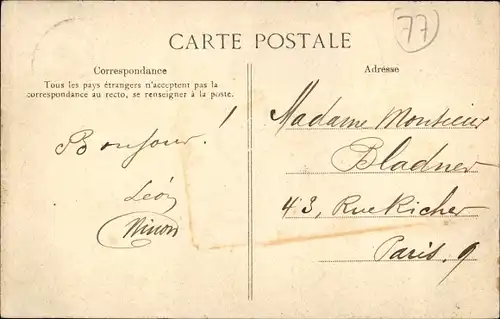 77
CARTE POSTALE
Correspondance
Tous les pays étrangers n'acceptent pas la
correspondance au recto, se renseigner à la poste.
Bonjour !
Léon
Ninon
Adresse
Madame Monsieur
Bladner
43, Rue Richer
Paris. 9